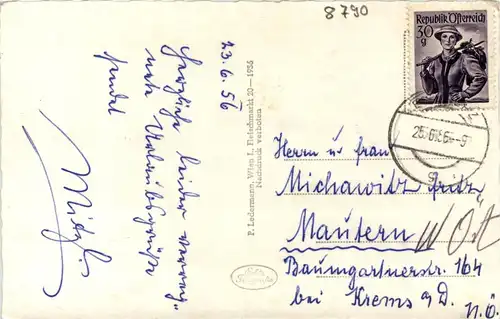 8790
Republik Österreich
30
g
25.6.56-9
23.6.56
Herzliche leider
nasse Urlaubsgrüße
sendet
Mitzl
P. Ledermann, Wien I., Fleischmarkt 20 — 1956
Nachdruck verboten
Herrn u frau
Michawitz fritz
Mautern
N Öst
Baumgartnerstr. 164
bei Krems a/D. N.Ö.